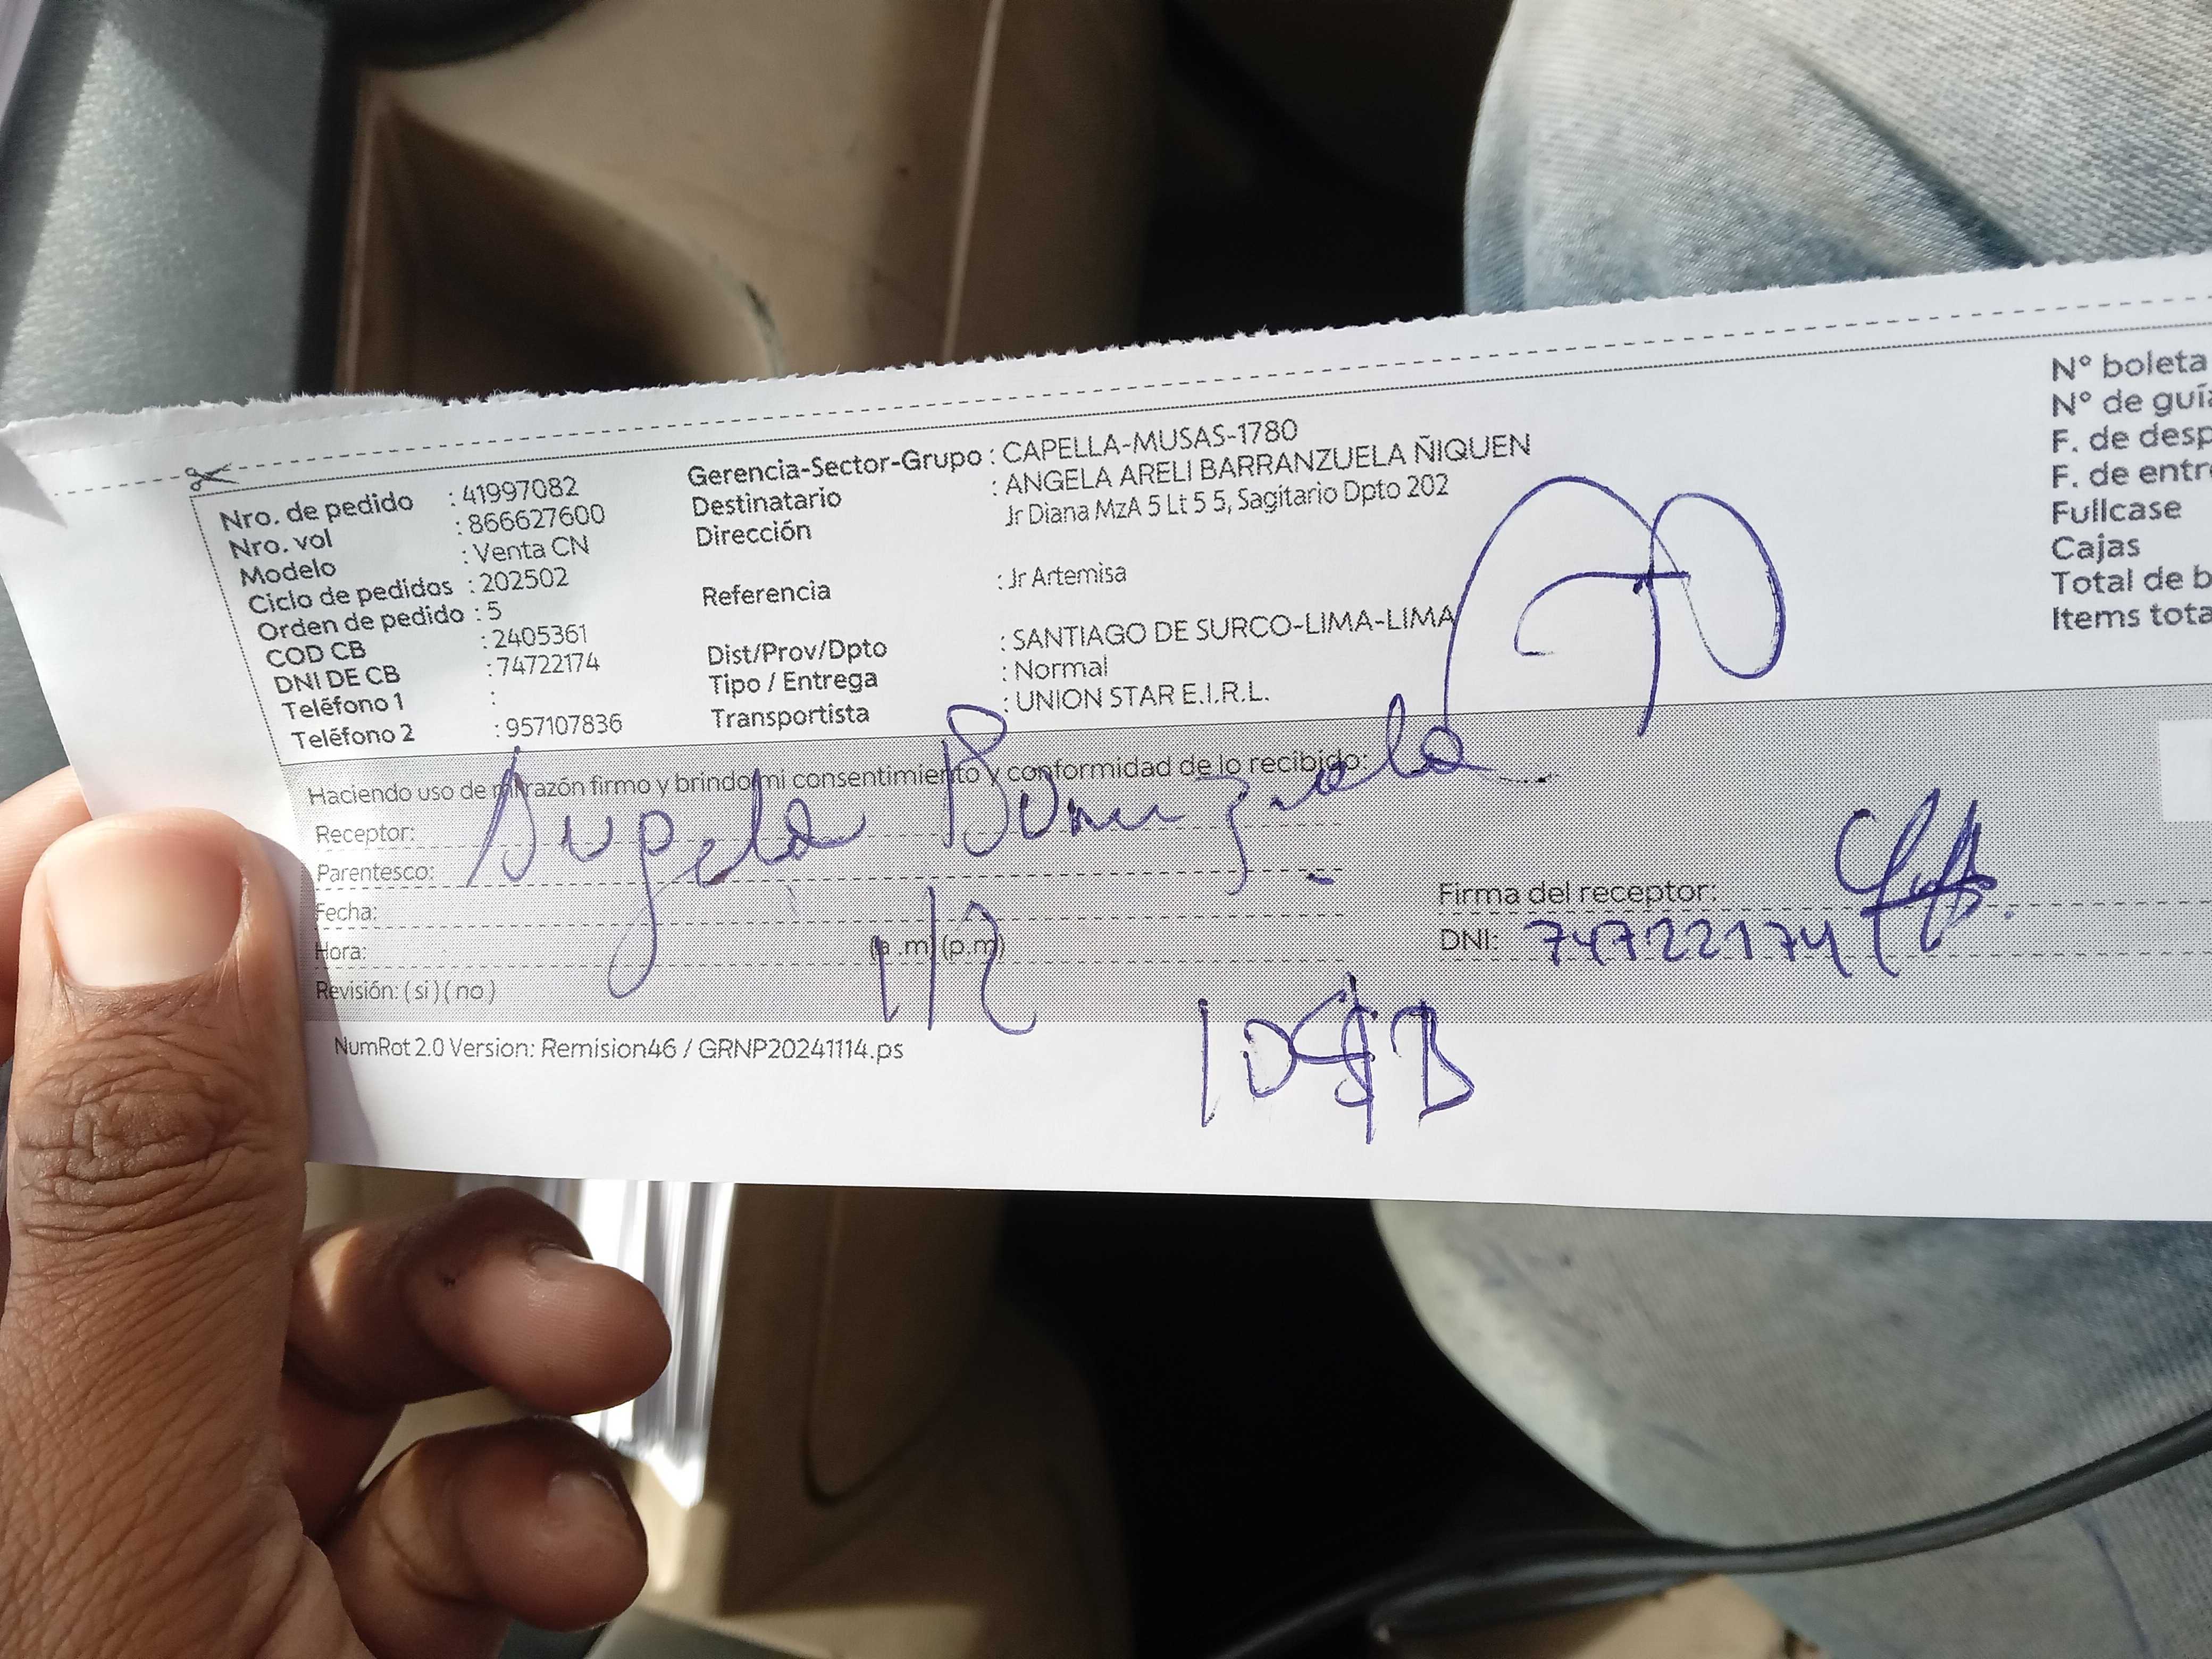 Nro. de pedido : 41997082
Nro. vol : 866627600
Modelo : Venta CN
Ciclo de pedidos : 202502
Orden de pedido : 5
COD CB : 2405361
DNI DE CB : 74722174
Teléfono 1 :
Teléfono 2 : 957107836
Gerencia-Sector-Grupo : CAPELLA-MUSAS-1780
Destinatario : ANGELA ARELI BARRANZUELA ÑIQUEN
Dirección Jr Diana MzA 5 Lt 5 5, Sagitario Dpto 202
Referencia : Jr Artemisa
Dist/Prov/Dpto : SANTIAGO DE SURCO-LIMA-LIMA
Tipo / Entrega : Normal
Transportista : UNION STAR E.I.R.L.
N° boleta
N° de guía
F. de desp
F. de entre
Fullcase
Cajas
Total de b
Items tota
Haciendo uso de mi razón firmo y brindo mi consentimiento y conformidad de lo recibido:
Receptor: Angela
Parentesco:
Fecha: 1/2
Hora: (a.m) (p.m)
Revisión: ( si ) ( no )
Firma del receptor:
DNI: 74722174
NumRot 2.0 Version: Remision46 / GRNP20241114.ps